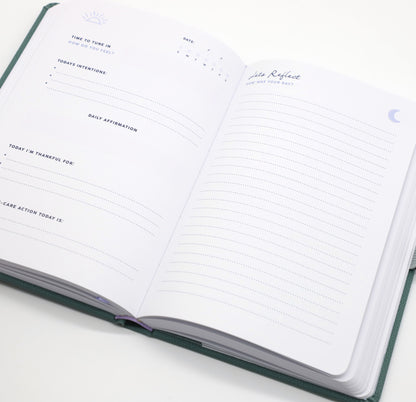 TIME TO TUNE IN
HOW DO YOU FEEL?
DATE:
TODAYS INTENTIONS:
DAILY AFFIRMATION
TODAY I'M THANKFUL FOR:
-CARE ACTION TODAY IS:
Reflect
HOW WAS YOUR DAY?